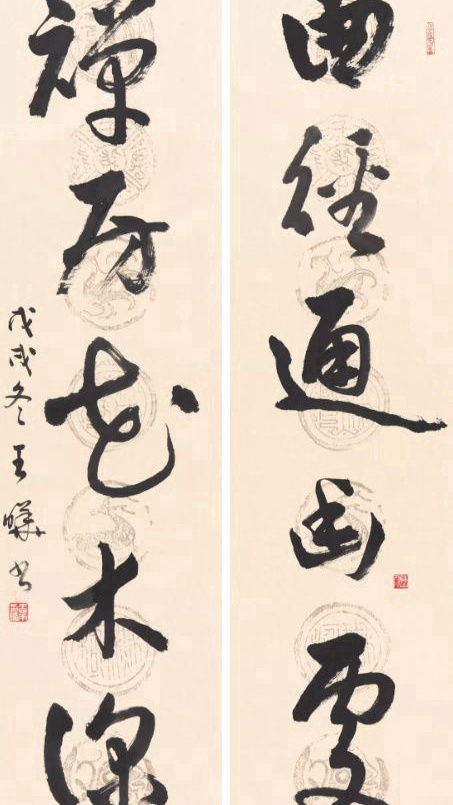 曲径通幽處
禪房花木深
戊戌冬王曄书